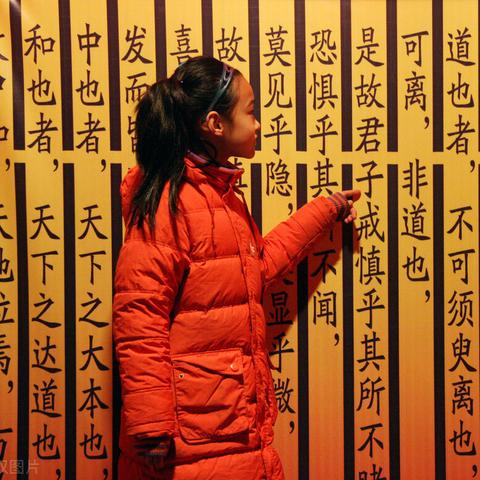 道也者,不可须臾离也,
可离,非道也,
是故君子戒慎乎其所不睹
恐惧乎其不闻,
莫见乎隐,显乎微,
故
喜
发而皆
中也者,天下之大本也,
和也者,天下之达道也,
中和,天地位焉,万